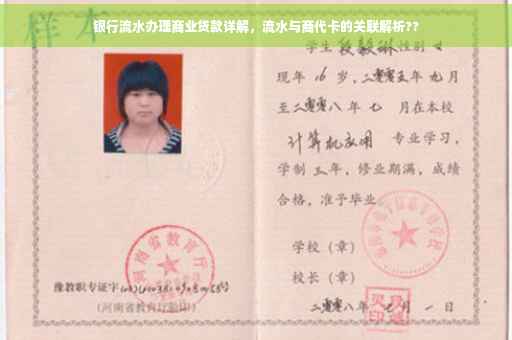 银行流水办理商业贷款详解，流水与商代卡的关联解析??
样本
学生 段毅琳 性别 女
现年 16 岁，二零零五年 九月
至二零零八年 七 月在本校
计算机应用 专业学习，
学制 三 年，修业期满，成绩
合格，准予毕业
学校（章）
河南省教育厅
校长（章）
豫教职专证字
(河南省教育厅验印)
二零零八年 七 月 一 日